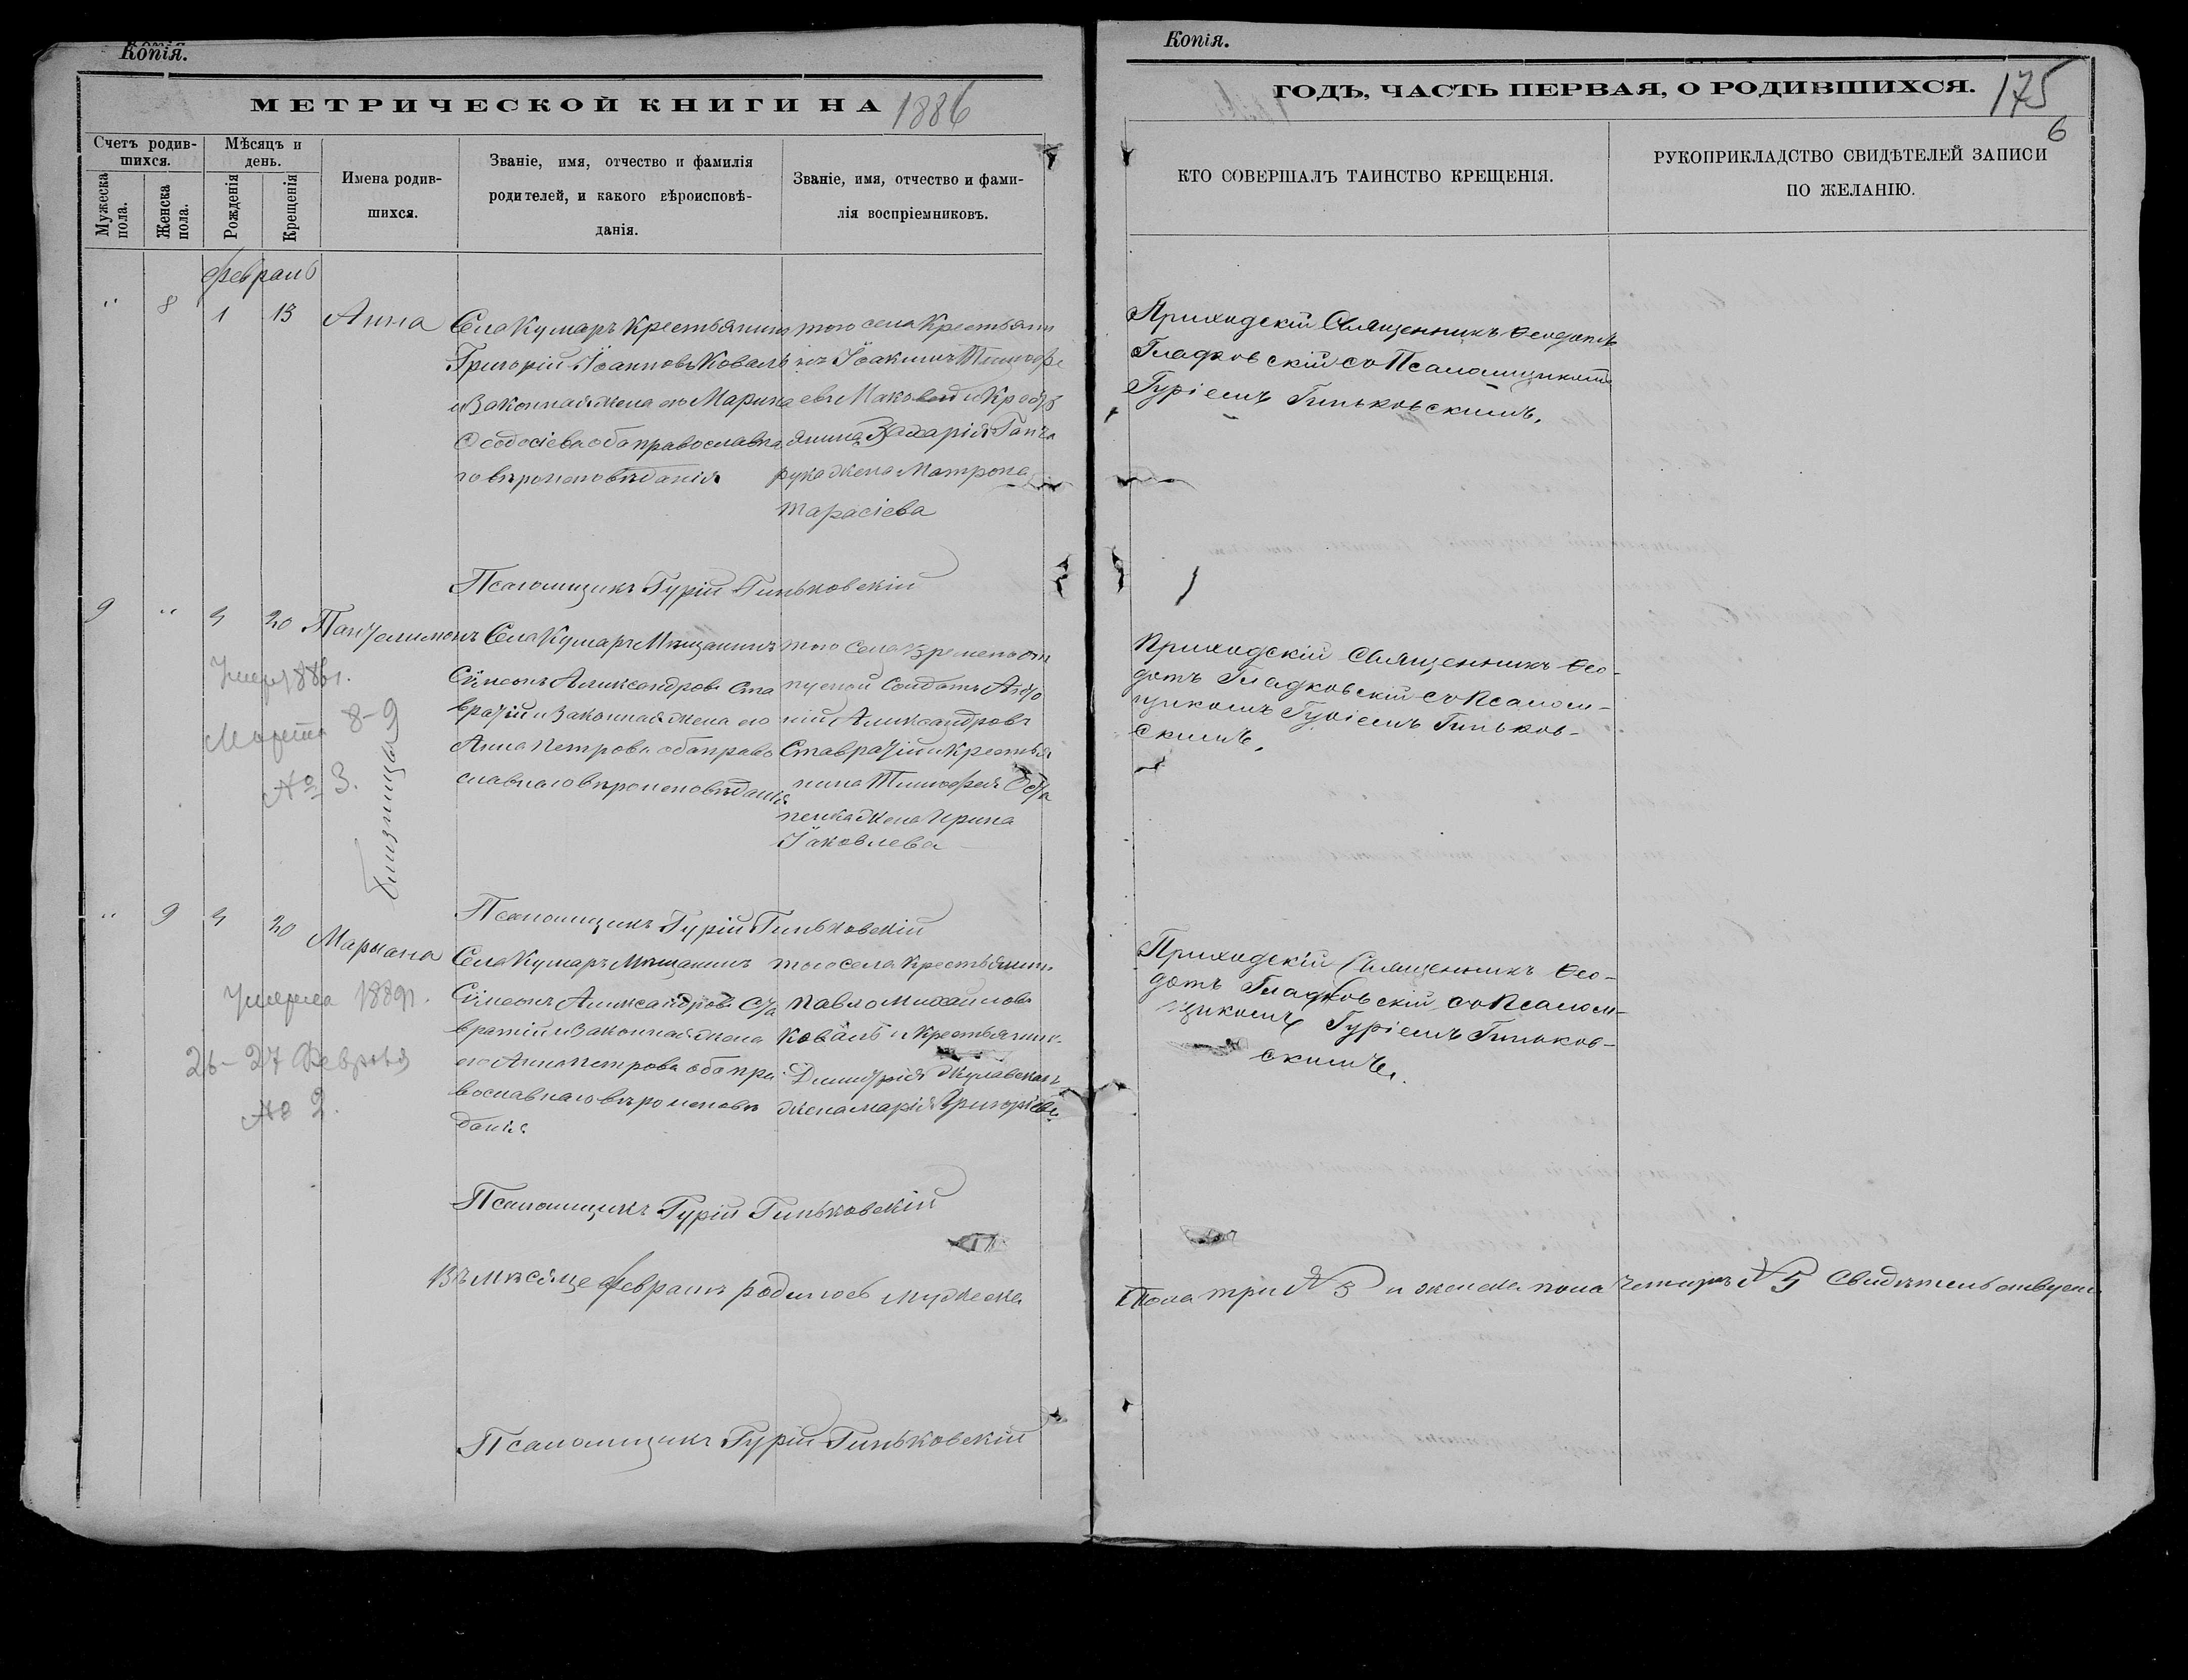 Копія.
МЕТРИЧЕСКОЙ КНИГИ НА 1886
Счетъ родив-
шихся.
Мѣсяцъ и
день.
Мужеска
пола.
Женска
пола.
Рожденія
Крещенія
Имена родив-
шихся.
Званіе, имя, отчество и фамилія
родителей, и какого вѣроисповѣ-
данія.
Званіе, имя, отчество и фами-
лія воспріемниковъ.
Февраль
" 8 1 13 Анна
Села Кумаръ Крестьянинъ
Григорій Іоанновъ Коваль
и Законная жена его Марина
Ѳеодосіева оба православна
го вѣроисповѣданія
того села Крестьян
инъ Іоакимъ Тимофе
евъ и Крестъ
янина Захарія Ганча
рука жена Матрона
Тарасіева
Псаломщикъ Гурій Гиньковскій
9 " 3 20 Пантелимонъ
Села Кумаръ Мѣщанинъ
Сѵмеонъ Александровъ Ста
вратій и Законная жена его
Анна Петрова оба право
славнаго вѣроисповѣданія
того Села Временоот
пускной Солдатъ Анто
ній Александровъ
Ставратій и Крестья
нина Тимофея Оста
пенка жена Ирина
Іаковлева
Умеръ 1886г.
Марта 8-9
№ 3.
Близнецы
Псаломщикъ Гурій Гиньковскій
" 9 3 20 Марыана
Села Кумаръ Мѣщанинъ
Сѵмеонъ Александровъ Ста
вратій и Законная жена
его Анна Петрова оба пра
вославнаго вѣроисповѣ
данія
того села Крестьянинъ
Павло Михайловъ
Коваль и Крестьянина
Димитрія
жена Марія Григоріева
Умерла 1889г.
26-27 Февраля
№ 2.
Псаломщикъ Гурій Гиньковскій
Въ мѣсяце Февралѣ родилось мужеска
Псаломщикъ Гурій Гиньковскій
Копія.
ГОДЪ, ЧАСТЬ ПЕРВАЯ, О РОДИВШИХСЯ.
175
6
КТО СОВЕРШАЛЪ ТАИНСТВО КРЕЩЕНІЯ.
РУКОПРИКЛАДСТВО СВИДѢТЕЛЕЙ ЗАПИСИ
ПО ЖЕЛАНІЮ.
Приходскій Священникъ Ѳеодотъ
Гладковскій со Псаломщикомъ
Гуріемъ Гиньковскимъ.
Приходскій Священникъ Ѳео-
дотъ Гладковскій со Псалом-
щикомъ Гуріемъ Гиньков-
скимъ.
Приходскій Священникъ Ѳео-
дотъ Гладковскій со Псалом-
щикомъ Гуріемъ Гиньков-
скимъ.
пола три № 3 и женска пола четыре № Свидѣтельствуемъ